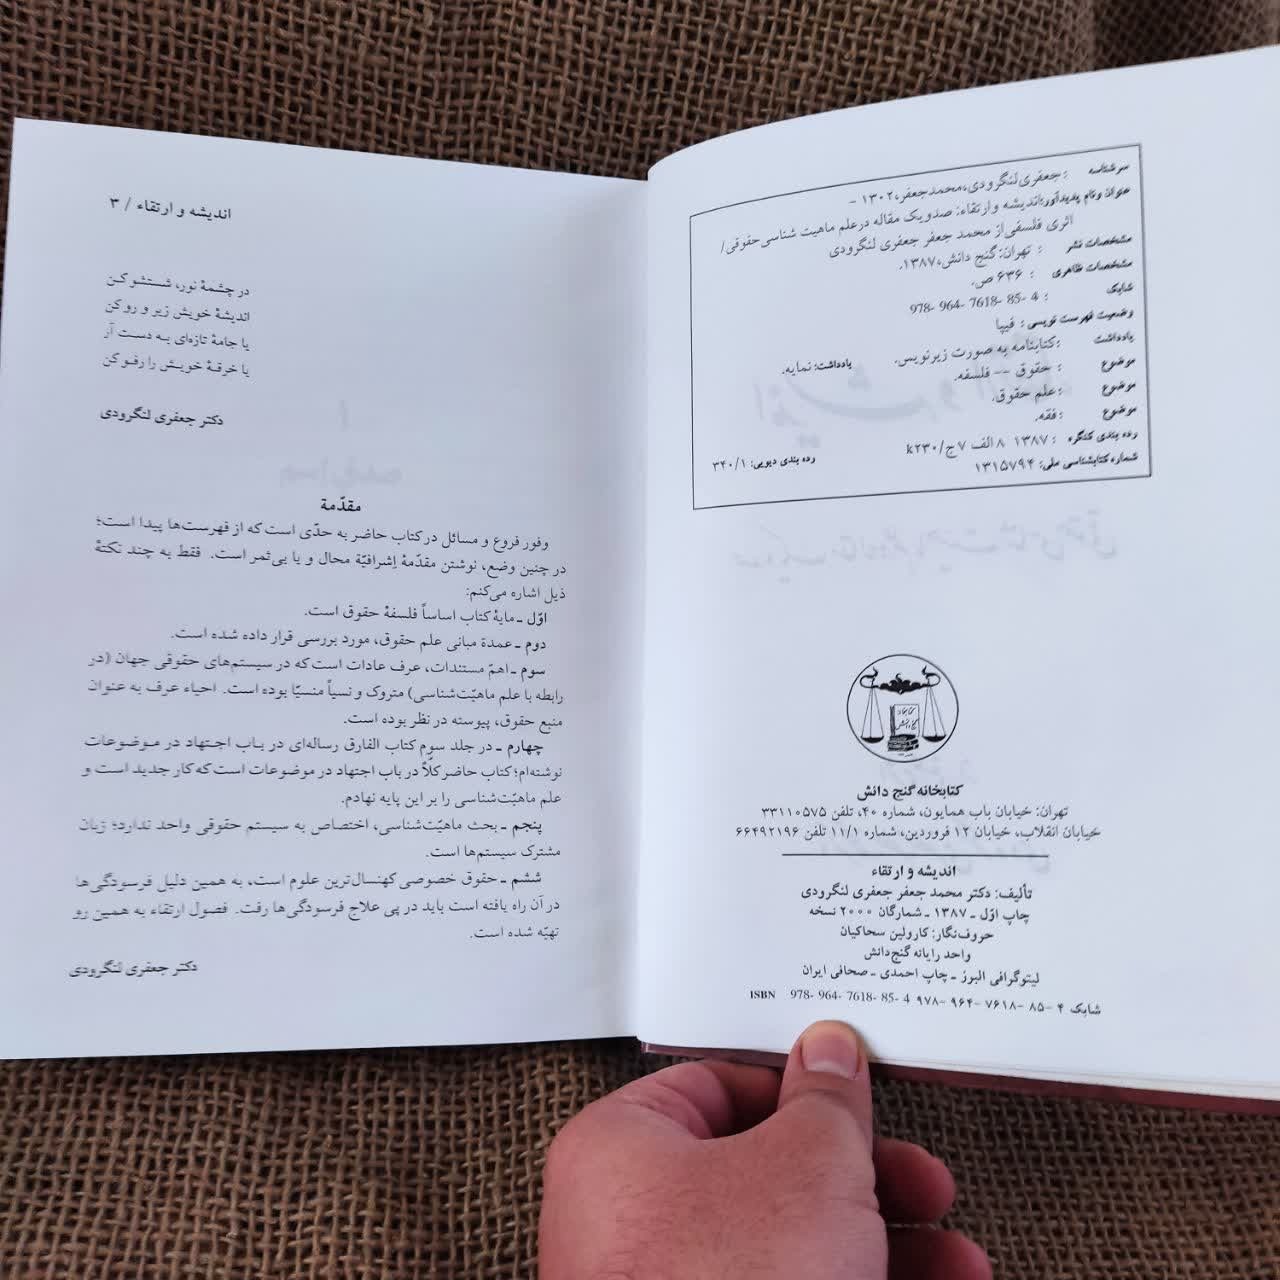 سرشناسه : جعفری لنگرودی، محمدجعفر، ۱۳۰۲ -
عنوان و نام پدیدآور: اندیشه و ارتقاء: صدویک مقاله در علم ماهیت شناسی حقوقی/
اثری فلسفی از محمد جعفر جعفری لنگرودی
مشخصات نشر : تهران: گنج دانش، ۱۳۸۷.
مشخصات ظاهری : ۶۳۶ ص.
شابک : 978- 964- 7618- 85- 4
وضعیت فهرست نویسی : فیپا
یادداشت : کتابنامه به صورت زیرنویس. یادداشت: نمایه.
موضوع : حقوق -- فلسفه.
موضوع : علم حقوق.
موضوع : فقه.
رده بندی کنگره : ۱۳۸۷ ۸ الف ۷ج/k۲۳۰ رده بندی دیویی: ۳۴۰/۱
شماره کتابشناسی ملی: ۱۳۱۵۷۹۴
کتابخانه گنج دانش
تهران: خیابان باب همایون، شماره ۴۰، تلفن ۳۳۱۱۰۵۷۵
خیابان انقلاب، خیابان ۱۲ فروردین، شماره ۱۱/۱ تلفن ۶۶۴۹۲۱۹۶
اندیشه و ارتقاء
تألیف: دکتر محمد جعفر جعفری لنگرودی
چاپ اوّل ـ ۱۳۸۷ ـ شمارگان ۲۰۰۰ نسخه
حروف‌نگار: کارولین سحاکیان
واحد رایانه گنج‌دانش
لیتوگرافی البرز ـ چاپ احمدی ـ صحافی ایران
شابک ۴ -۸۵ -۷۶۱۸ -۹۶۴ -۹۷۸ ISBN 978- 964- 7618- 85- 4
اندیشه و ارتقاء / ۳
در چشمهٔ نور، شستشو کن
اندیشهٔ خویش زیر و رو کن
یا جامهٔ تازه‌ای به دست آر
یا خرقهٔ خویش را رفو کن
دکتر جعفری لنگرودی
مقدّمة
وفور فروع و مسائل در کتاب حاضر به حدّی است که از فهرست‌ها پیدا است؛
در چنین وضع، نوشتن مقدّمهٔ اِشرافیّه محال و یا بی‌ثمر است. فقط به چند نکتهٔ
ذیل اشاره می‌کنم:
اوّل ـ مایهٔ کتاب اساساً فلسفهٔ حقوق است.
دوم ـ عمدة مبانی علم حقوق، مورد بررسی قرار داده شده است.
سوم ـ اهمّ مستندات، عرف عادات است که در سیستم‌های حقوقی جهان (در
رابطه با علم ماهیّت‌شناسی) متروک و نسیاً منسیّا بوده است. احیاء عرف به عنوان
منبع حقوق، پیوسته در نظر بوده است.
چهارم ـ در جلد سوم کتاب الفارق رساله‌ای در باب اجتهاد در موضوعات
نوشته‌ام؛ کتاب حاضر کلّاً در باب اجتهاد در موضوعات است که کار جدید است و
علم ماهیّت‌شناسی را بر این پایه نهادم.
پنجم ـ بحث ماهیّت‌شناسی، اختصاص به سیستم حقوقی واحد ندارد؛ زبان
مشترک سیستم‌ها است.
ششم ـ حقوق خصوصی کهنسال‌ترین علوم است، به همین دلیل فرسودگی‌ها
در آن راه یافته است باید در پی علاج فرسودگی‌ها رفت. فصول ارتقاء به همین رو
تهیّه شده است.
دکتر جعفری لنگرودی